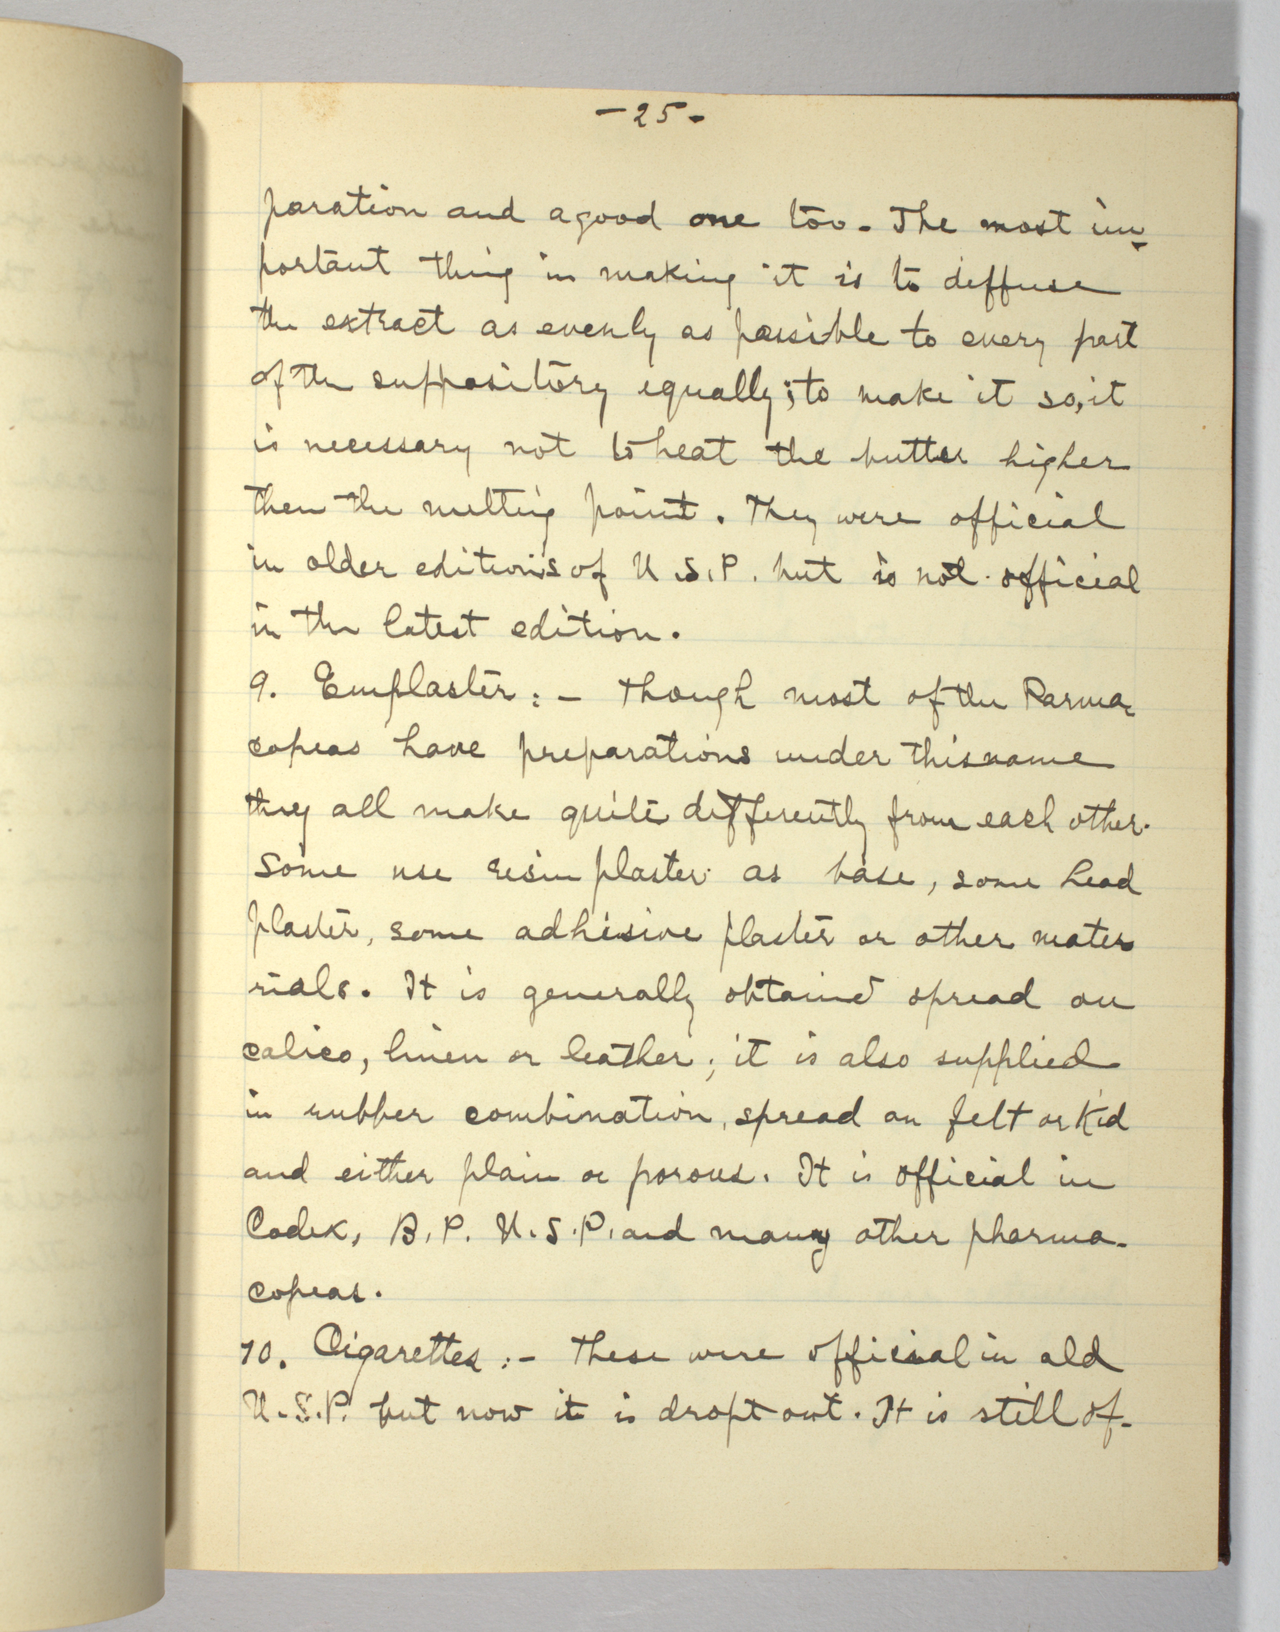 -25-
paration and a good one too. The most im-
portant thing in making it is to deffuse
the extract as evenly as possible to every part
of the suppository equally; to make it so, it
is necessary not to heat the butter higher
then the melting point. They were official
in older editions of U.S.P. but is not official
in the latest edition.
9. Emplaster:- Though most of the Parma-
copeas have preparations under this name
they all make quite differently from each other.
Some use resin plaster as base, some lead
plaster, some adhesive plaster or other mate-
rials. It is generally obtained spread on
calico, linen or leather; it is also supplied
in rubber combination, spread on felt or Kid
and either plain or porous. It is official in
Codex, B.P. U.S.P. and many other pharma-
copeas.
10. Cigarettes:- These were official in old
U.S.P. but now it is dropt out. It is still of-